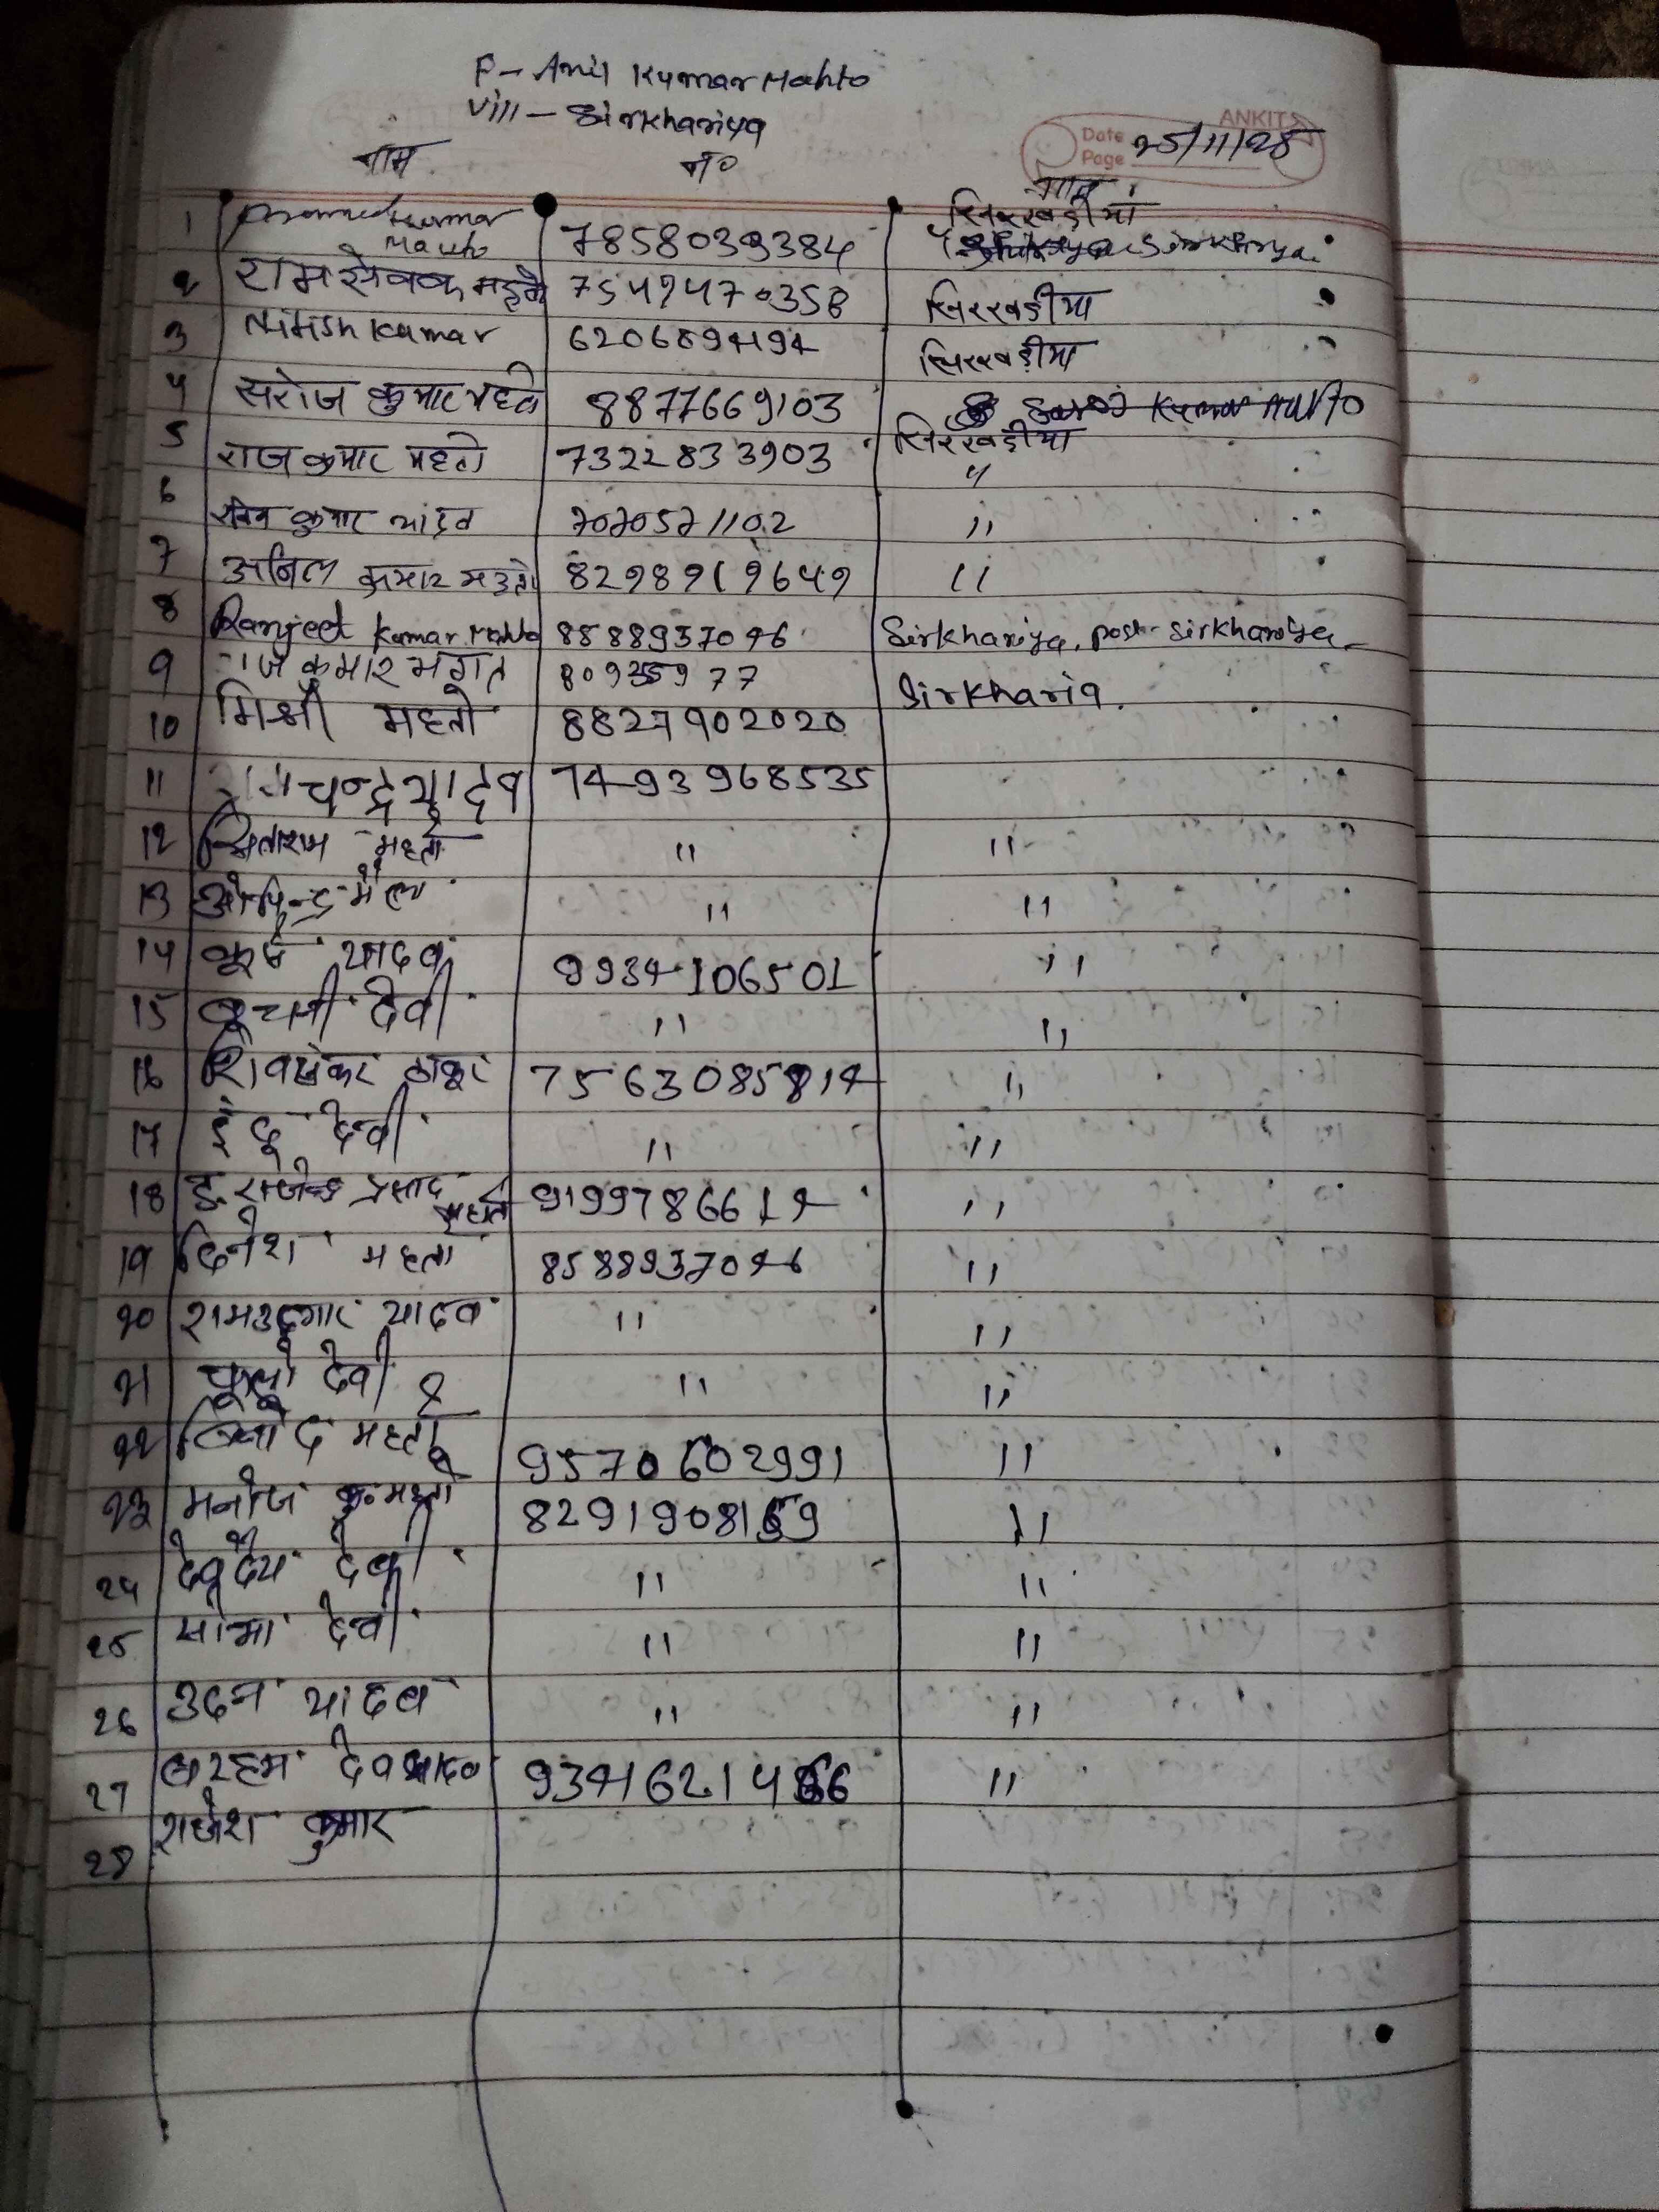 P- Anil Kumar Mahto
Vill - Sirkhariya
ANKIT
Date
Page 25/11/25
नाम नं०
1 Kumar Mahto 7858039384 सिरखड़ीया Sirkhriya
2 रामसेवक महतो 7549470358 सिरखड़ीया
3 Nitish Kumar 6206894194 सिरखड़ीया
4 सरोज कुमार महतो 8877669103 Saroj Kumar Mahto
सिरखड़ीया
5 राज कुमार महतो 7322833903 "
6 कुमार यादव 7070571102 "
7 अनिल कुमार महतो 8298919649 "
8 Ranjeet Kumar Mahto 8588937046 Sirkhariya, post - Sirkhariya
9 कुमार भगत
Sirkharia.
10 मिश्री महतो 8827902020
11 चन्द्र यादव 7493968535
12 सिताराम महतो " "
13 " "
14 यादव 9934106501 "
15 बुचनी देवी " "
16 शिवशंकर ठाकुर 7563085814 "
17 इंदू देवी " "
18 डॉ. राजेन्द्र प्रसाद महतो 9199786614 "
19 दिनेश महतो 8588937046 "
20 रामउदगार यादव " "
21 देवी " "
22 विनोद महतो 9570602991 "
23 मनोज कु. महतो "
24 देवी " "
25 देवी " "
26 उदन यादव " "
27 बरहम देव यादव "
28 राजेश कुमार